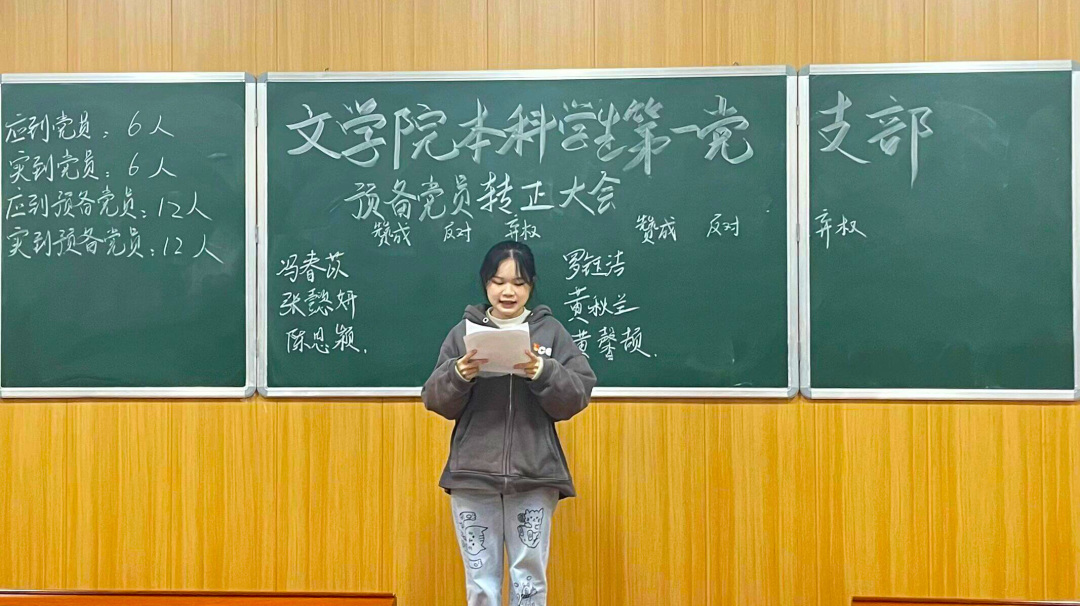 应到党员：6人
实到党员：6人
应到预备党员：12人
实到预备党员：12人
文学院本科学生第一党支部
预备党员转正大会
赞成 反对 弃权 赞成 反对 弃权
冯春苡 罗钰洁
张懿妍 黄秋兰
陈思颖. 黄馨颉.